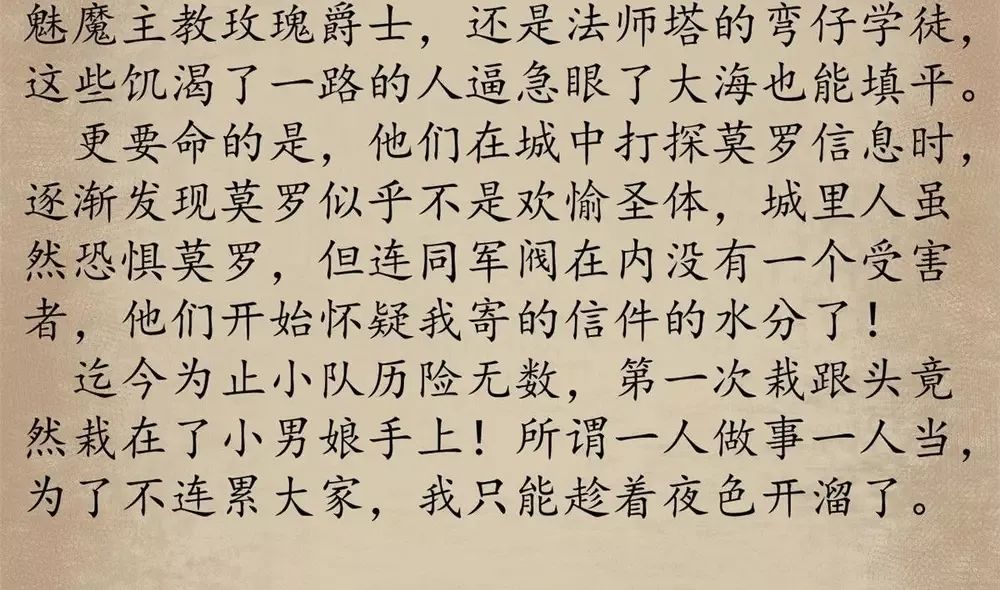 魅魔主教玫瑰爵士，还是法师塔的弯仔学徒，
这些饥渴了一路的人逼急眼了大海也能填平。
更要命的是，他们在城中打探莫罗信息时，
逐渐发现莫罗似乎不是欢愉圣体，城里人虽
然恐惧莫罗，但连同军阀在内没有一个受害
者，他们开始怀疑我寄的信件的水分了！
迄今为止小队历险无数，第一次栽跟头竟
然栽在了小男娘手上！所谓一人做事一人当，
为了不连累大家，我只能趁着夜色开溜了。